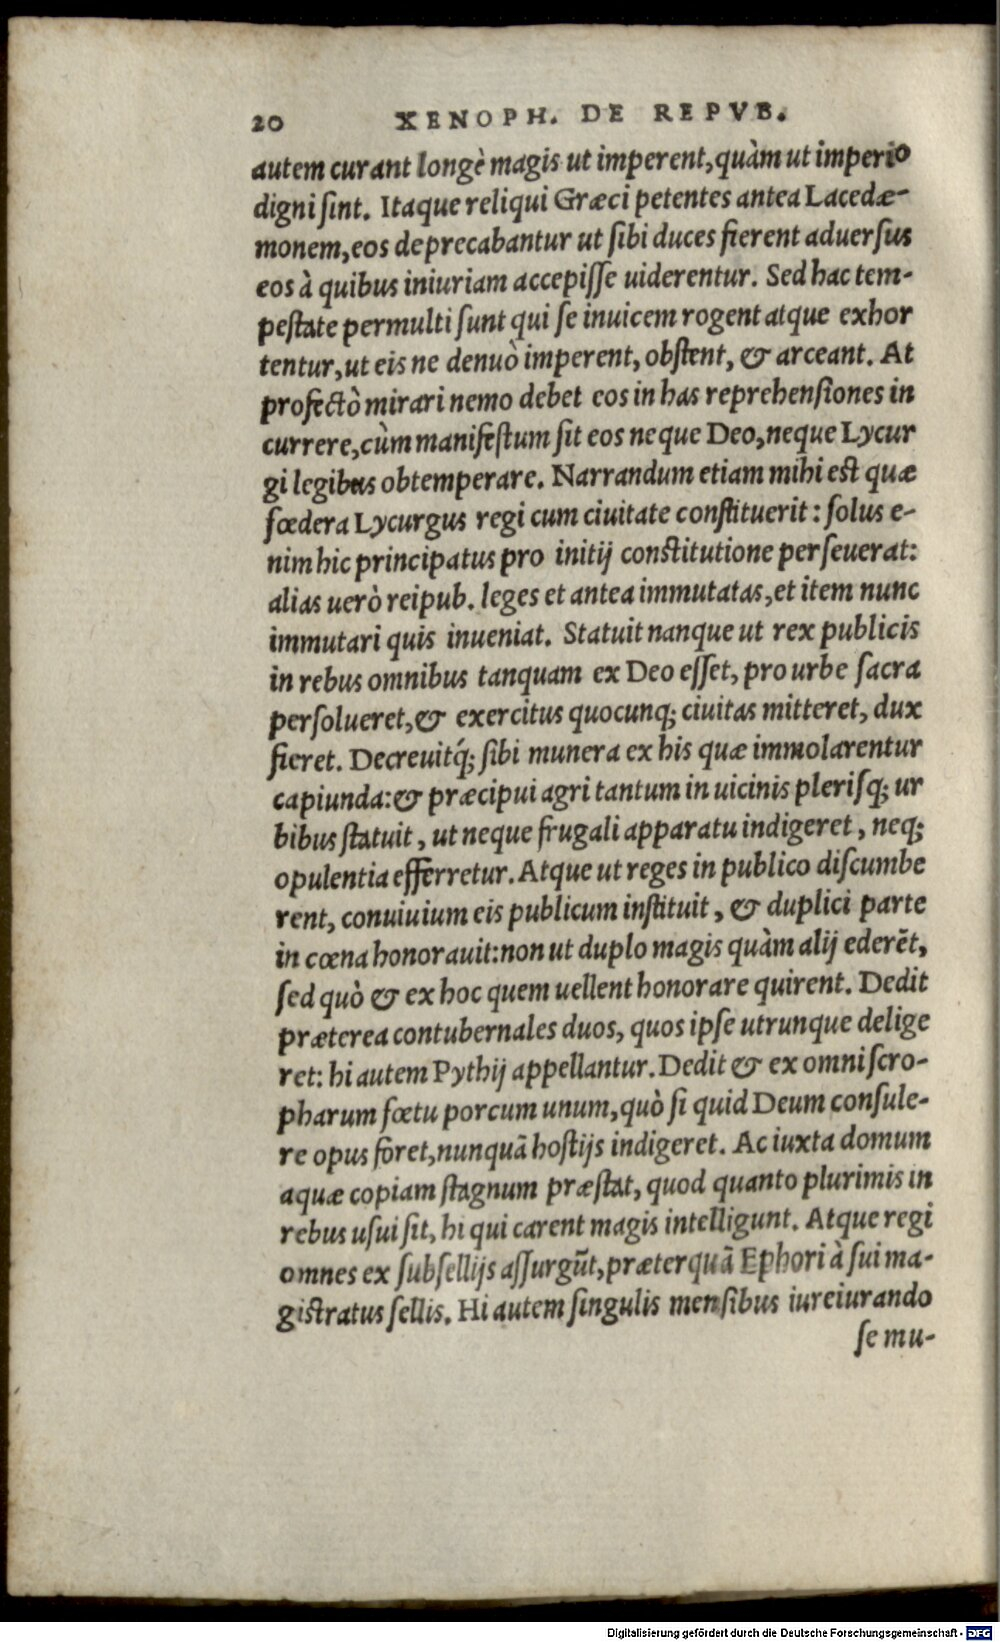 20 XENOPH. DE REPVB.
autem curant longè magis ut imperent, quàm ut imperio
digni ſint. Itaque reliqui Græci petentes antea Lacedæ-
monem, eos deprecabantur ut ſibi duces fierent aduerſus
eos à quibus iniuriam accepiſſe uiderentur. Sed hac tem-
peſtate permulti ſunt qui ſe inuicem rogent atque exhor
tentur, ut eis ne denuò imperent, obſtent, & arceant. At
profectò mirari nemo debet eos in has reprehenſiones in
currere, cùm manifeſtum ſit eos neque Deo, neque Lycur
gi legibus obtemperare. Narrandum etiam mihi eſt quæ
fœdera Lycurgus regi cum ciuitate conſtituerit: ſolus e-
nim hic principatus pro initij conſtitutione perſeuerat:
alias uerò reipub. leges et antea immutatas, et item nunc
immutari quis inueniat. Statuit nanque ut rex publicis
in rebus omnibus tanquam ex Deo eſſet, pro urbe ſacra
perſolueret, & exercitus quocunq; ciuitas mitteret, dux
fieret. Decreuitq́; ſibi munera ex his quæ immolarentur
capiunda: & præcipui agri tantum in uicinis pleriſq; ur
bibus ſtatuit, ut neque frugali apparatu indigeret, neq;
opulentia efferretur. Atque ut reges in publico diſcumbe
rent, conuiuium eis publicum inſtituit, & duplici parte
in cœna honorauit: non ut duplo magis quàm alij ederēt,
ſed quò & ex hoc quem uellent honorare quirent. Dedit
præterea contubernales duos, quos ipſe utrunque delige
ret: hi autem Pythij appellantur. Dedit & ex omni ſcro-
pharum fœtu porcum unum, quò ſi quid Deum conſule-
re opus foret, nunquā hoſtijs indigeret. Ac iuxta domum
aquæ copiam ſtagnum præſtat, quod quanto plurimis in
rebus uſui ſit, hi qui carent magis intelligunt. Atque regi
omnes ex ſubſellijs aſſurgūt, præterquā Ephori à ſui ma-
giſtratus ſellis. Hi autem ſingulis menſibus iureiurando
ſe mu-
Digitalisierung gefördert durch die Deutsche Forschungsgemeinschaft - DFG